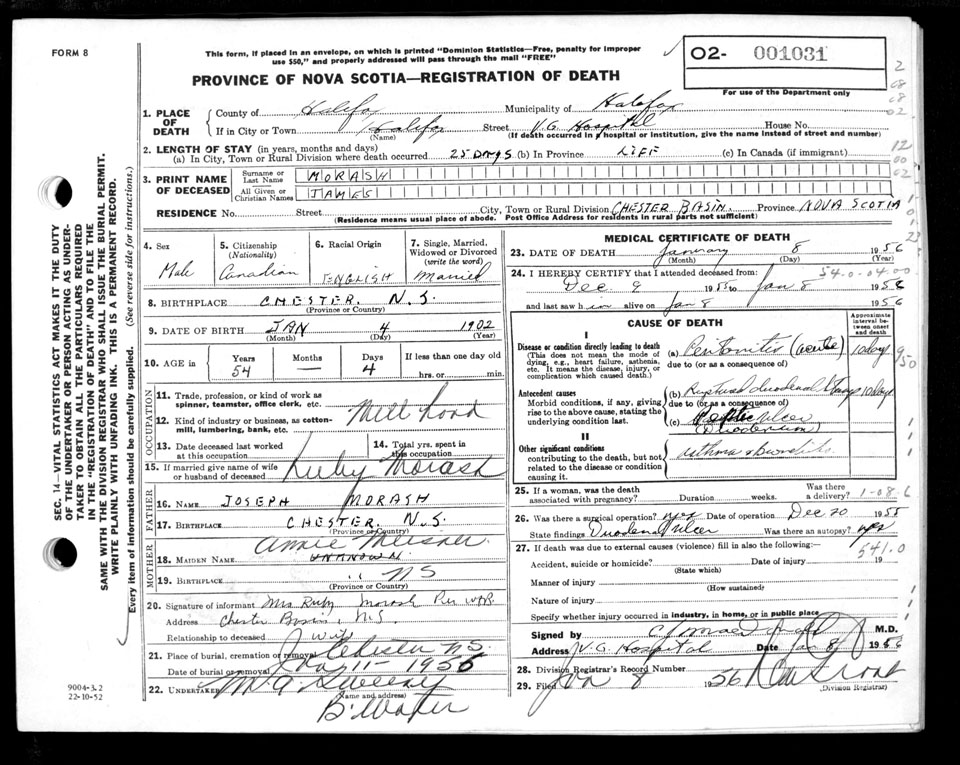 FORM 8
This form, if placed in an envelope, on which is printed "Dominion Statistics—Free, penalty for improper
use $50," and properly addressed will pass through the mail "FREE"
PROVINCE OF NOVA SCOTIA—REGISTRATION OF DEATH
02- 001031
For use of the Department only
SEC. 14—VITAL STATISTICS ACT MAKES IT THE DUTY
OF THE UNDERTAKER OR PERSON ACTING AS UNDER-
TAKER TO OBTAIN ALL THE PARTICULARS REQUIRED
IN THE "REGISTRATION OF DEATH" AND TO FILE THE
SAME WITH THE DIVISION REGISTRAR WHO SHALL ISSUE THE BURIAL PERMIT.
WRITE PLAINLY WITH UNFADING INK. THIS IS A PERMANENT RECORD.
Every item of information should be carefully supplied. (See reverse side for instructions.)
1. PLACE OF DEATH
County of Halifax Municipality of Halifax
If in City or Town Halifax Street V.G. Hospital House No.
(Name) (If death occurred in hospital or institution, give the name instead of street and number)
2. LENGTH OF STAY (in years, months and days)
(a) In City, Town or Rural Division where death occurred 25 DAYS (b) In Province LIFE (c) In Canada (if immigrant)
3. PRINT NAME OF DECEASED
Surname or Last Name MORASH
All Given or Christian Names JAMES
RESIDENCE No. Street City, Town or Rural Division CHESTER BASIN. Province NOVA SCOTIA
(Residence means usual place of abode. Post Office Address for residents in rural parts not sufficient)
4. Sex Male
5. Citizenship (Nationality) Canadian
6. Racial Origin ENGLISH
7. Single, Married, Widowed or Divorced (write the word) Married
8. BIRTHPLACE CHESTER. N.S.
(Province or Country)
9. DATE OF BIRTH JAN 4 1902
(Month) (Day) (Year)
10. AGE in Years 54 Months — Days 4 If less than one day old hrs. or min.
OCCUPATION
11. Trade, profession, or kind of work as spinner, teamster, office clerk, etc.
12. Kind of industry or business, as cotton-mill, lumbering, bank, etc. Mill hand
13. Date deceased last worked at this occupation
14. Total yrs. spent in this occupation
15. If married give name of wife or husband of deceased Ruby Morash
FATHER
16. NAME JOSEPH MORASH
17. BIRTHPLACE CHESTER. N.S.
(Province or Country)
MOTHER
Annie Meisner.
18. MAIDEN NAME UNKNOWN
19. BIRTHPLACE " NS
(Province or Country)
20. Signature of informant Mrs Ruby Morash Per
Address Chester Basin, N.S.
Relationship to deceased wife
21. Place of burial, cremation or removal Chester N.S.
Date of burial or removal Jan 11 - 1956
22. UNDERTAKER Sweeny
(Name and address)
B. Water
MEDICAL CERTIFICATE OF DEATH
23. DATE OF DEATH January 8 1956
(Month) (Day) (Year)
24. I HEREBY CERTIFY that I attended deceased from:
Dec 9 1955 to Jan 8 1956
and last saw h im alive on Jan 8 1956
54-0-04.00
CAUSE OF DEATH
Approximate interval between onset and death
I
Disease or condition directly leading to death
(This does not mean the mode of dying, e.g., heart failure, asthenia, etc. It means the disease, injury, or complication which caused death.)
(a) Peritonitis (acute) 10 days
due to (or as a consequence of)
Antecedent causes
Morbid conditions, if any, giving rise to the above cause, stating the underlying condition last.
(b) Ruptured duodenal 10 days
due to (or as a consequence of)
(c) Peptic Ulcer
(Duodenum)
II
Other significant conditions
contributing to the death, but not related to the disease or condition causing it.
Asthma & Bronchitis
25. If a woman, was the death associated with pregnancy? Duration weeks. Was there a delivery? 1-08-6
26. Was there a surgical operation? yes Date of operation Dec 20 1955
State findings Duodenal Ulcer Was there an autopsy? yes
27. If death was due to external causes (violence) fill in also the following: 541.0
Accident, suicide or homicide? Date of injury 19
(State which)
Manner of injury
(How sustained)
Nature of injury
Specify whether injury occurred in industry, in home, or in public place
Signed by M.D.
Address V.G. Hospital Date Jan 8 1956
28. Division Registrar's Record Number
29. Filed Jan 8 1956
(Division Registrar)
9004-3.2
22-10-52